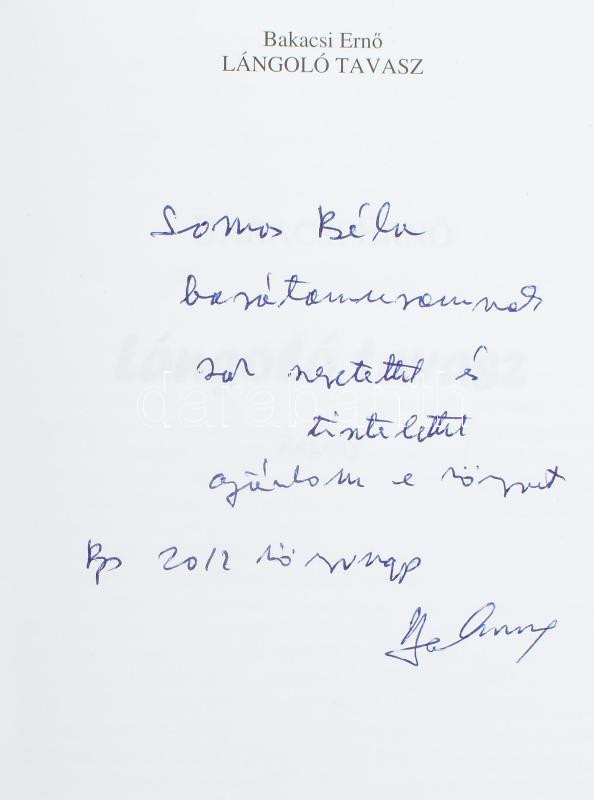 Bakacsi Ernő
LÁNGOLÓ TAVASZ
Somos Béla
barátomuramnak
sok szeretettel és
tisztelettel
ajánlom e könyvet
Bp 2012 könyvnap